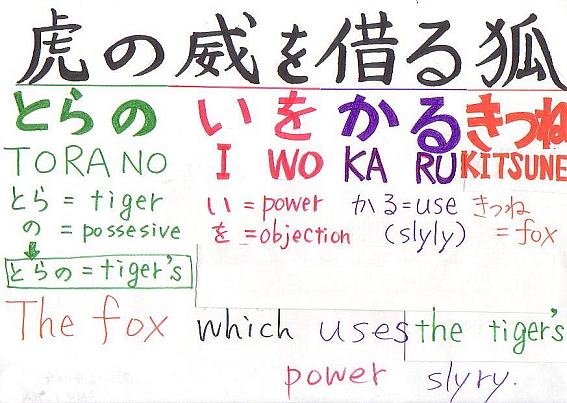 虎の威を借る狐
とらの いを かる きつね
TORA NO I WO KA RU KITSUNE
とら = tiger い = power かる = use きつね
の = possesive を = objection (slyly) = fox
とらの = tiger's
The fox which uses the tiger's
power slyry.